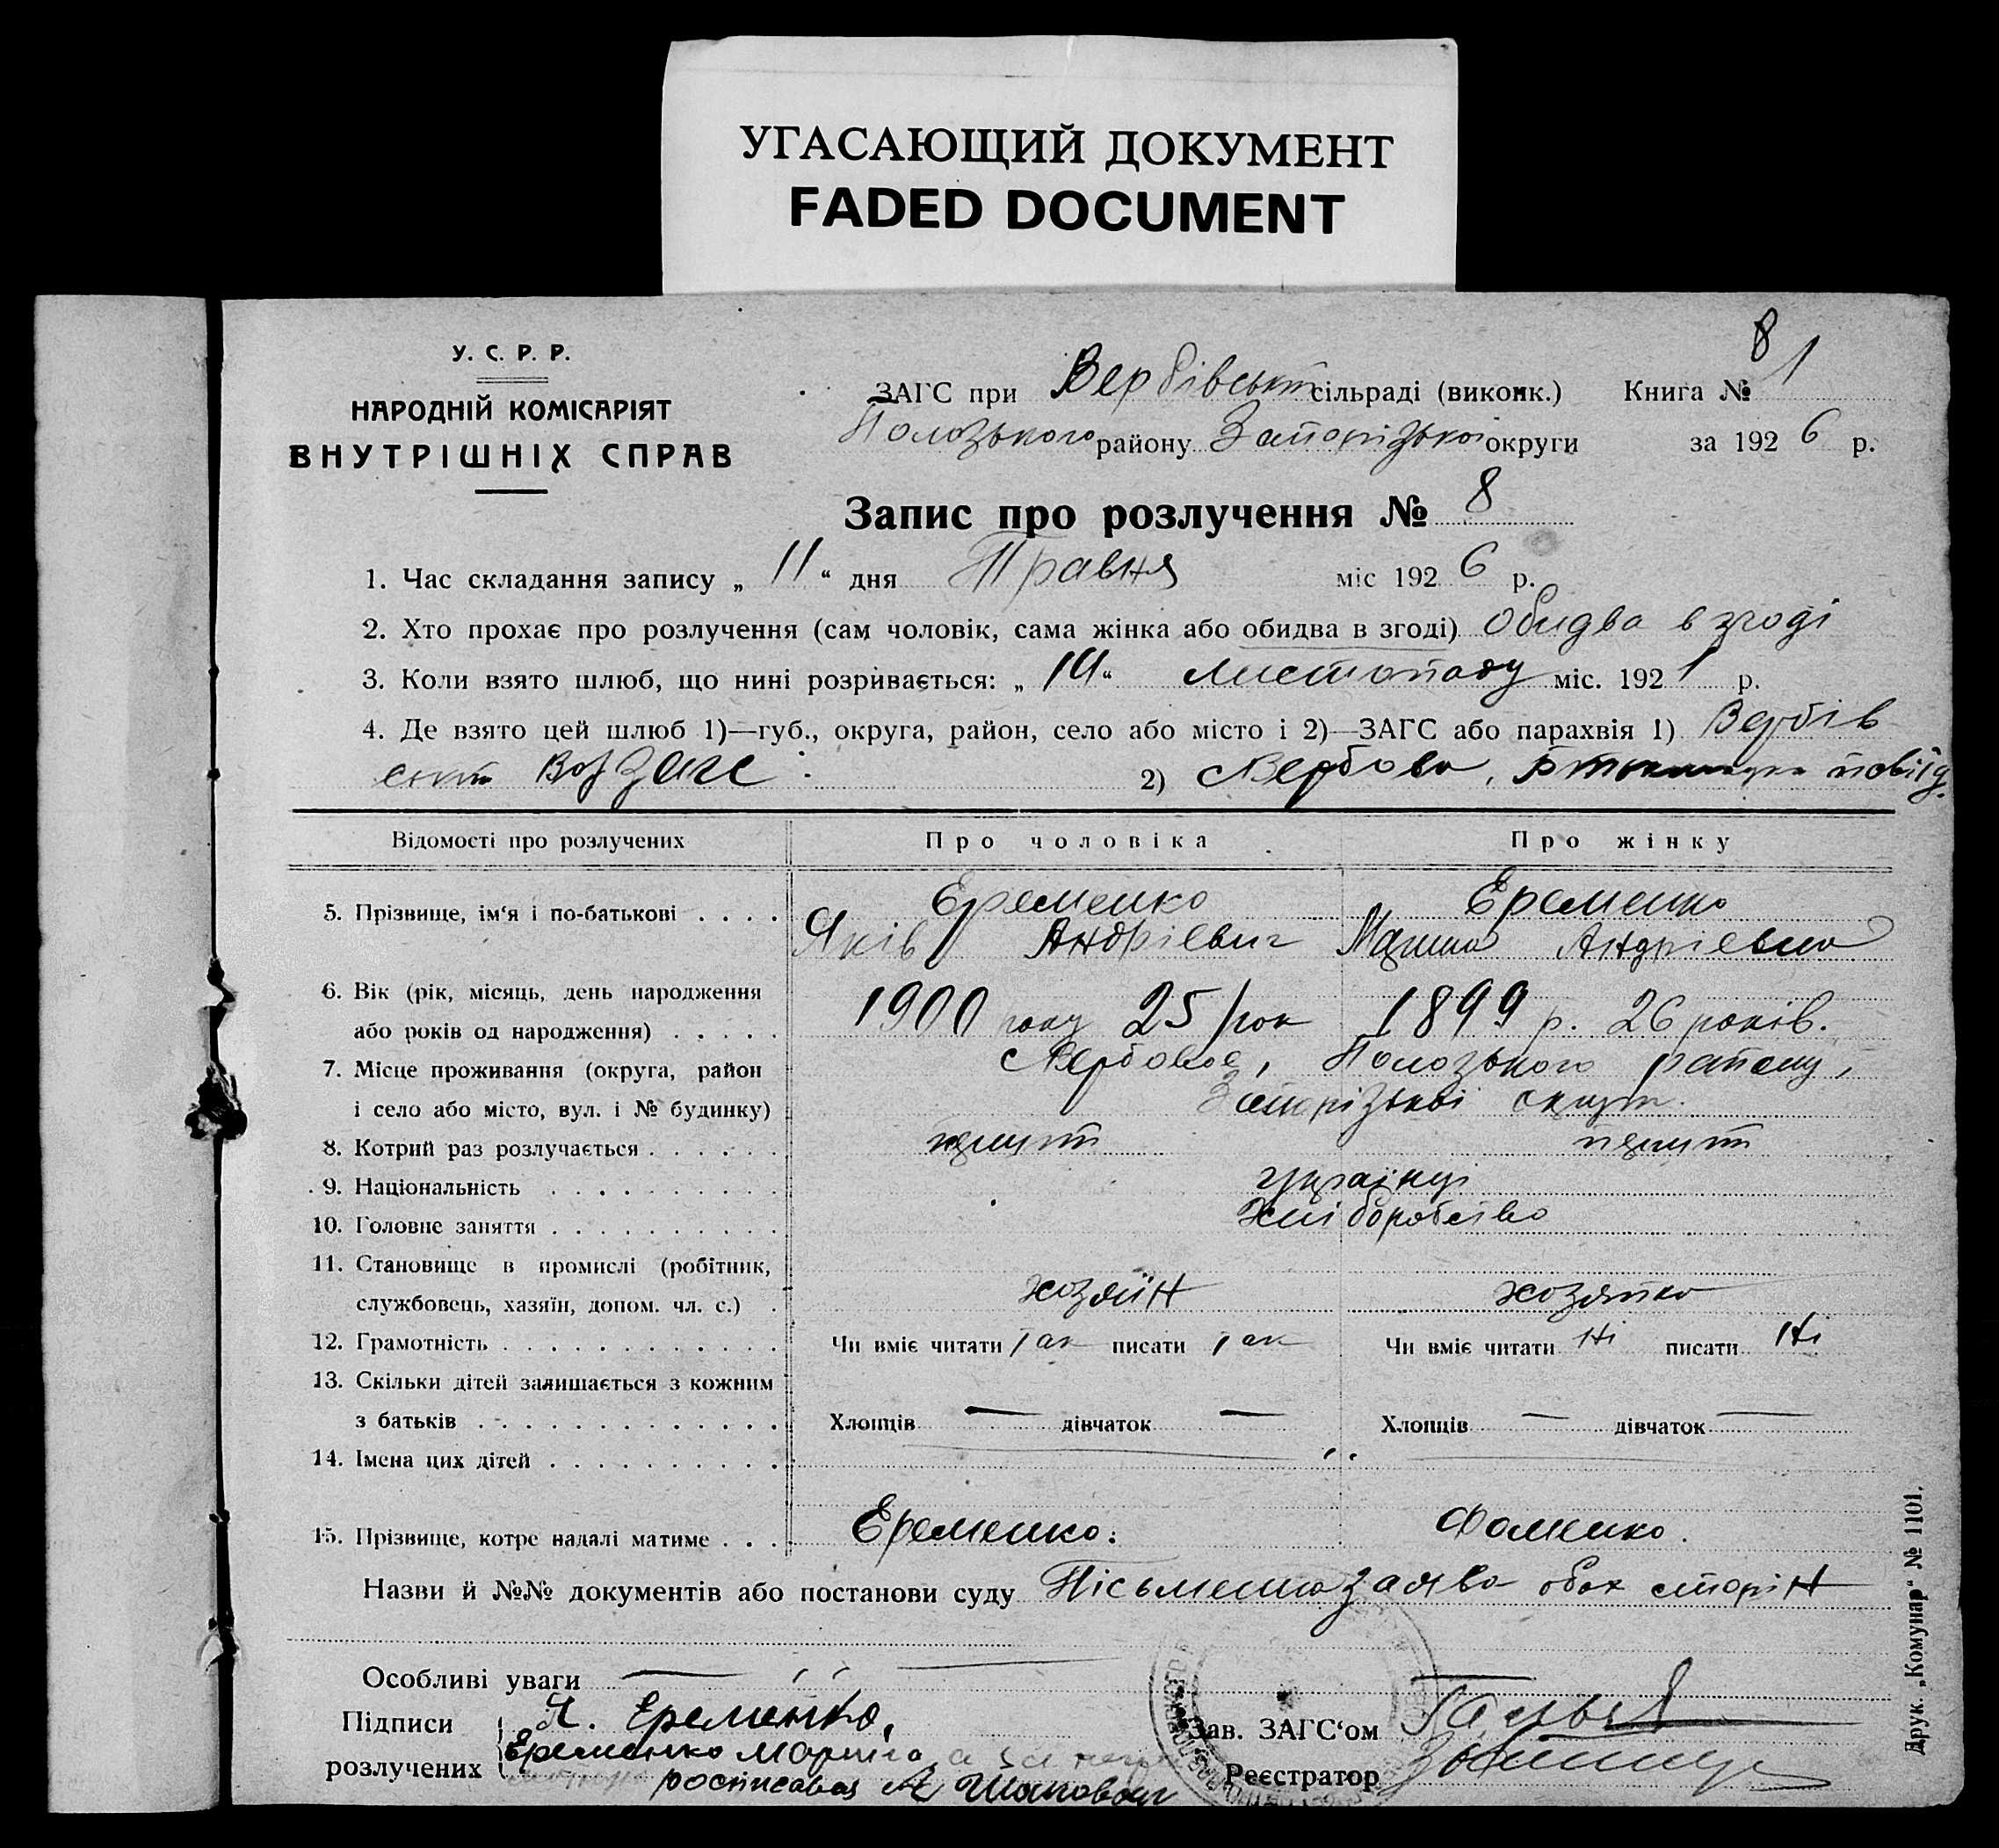 УГАСАЮЩИЙ ДОКУМЕНТ
FADED DOCUMENT
У. С. Р. Р.
НАРОДНІЙ КОМІСАРІЯТ
ВНУТРІШНІХ СПРАВ
8 1
ЗАГС при Вербівськ сільраді (виконк.) Книга №
Полозького району Запорізької округи за 1926 р.
Запис про розлучення № 8
1. Час складання запису „ 11 “ дня Травня міс 1926 р.
2. Хто прохає про розлучення (сам чоловік, сама жінка або обидва в згоді) Обидва в згоді
3. Коли взято шлюб, що нині розривається: „ 14 “ листопаду міс. 1921 р.
4. Де взято цей шлюб 1)—губ., округа, район, село або місто і 2)—ЗАГС або парахвія 1) Вербів
ськ ЗАГС 2) с Вербове, повіту
Відомості про розлучених Про чоловіка Про жінку
5. Прізвище, ім‘я і по-батькові . . . . Еременко Еременко
Яків Андрієвич Марина Андрієвна
6. Вік (рік, місяць, день народження
або років од народження) . . . . . 1900 року 25 рок 1899 р. 26 років.
7. Місце проживання (округа, район с Вербове, Полозького району,
і село або місто, вул. і № будинку) Запорізької округи.
8. Котрий раз розлучається . . . . . . перший перший
9. Національність . . . . . . . . . українці
10. Головне заняття . . . . . . . . . . Хліборобство
11. Становище в промислі (робітник,
службовець, хазяїн, допом. чл. с.) . хозяїн хозяйка
12. Грамотність . . . . . . . . . . . . Чи вміє читати Так писати Так Чи вміє читати Ні писати Ні
13. Скільки дітей залишається з кожним
з батьків . . . . . . . . . . . . . Хлопців — дівчаток — Хлопців — дівчаток —
14. Імена цих дітей . . . . . . . . . .
15. Прізвище, котре надалі матиме . . . Еременко. Фоменко.
Назви й №№ документів або постанови суду Пісьменна заява обох сторін
Особливі уваги —
Підписи Я. Еременко,
розлучених Еременко Марина а за неї
росписався А Шаповал
Зав. ЗАГС‘ом
Реєстратор
Друк. „Комунар“ № 1101.